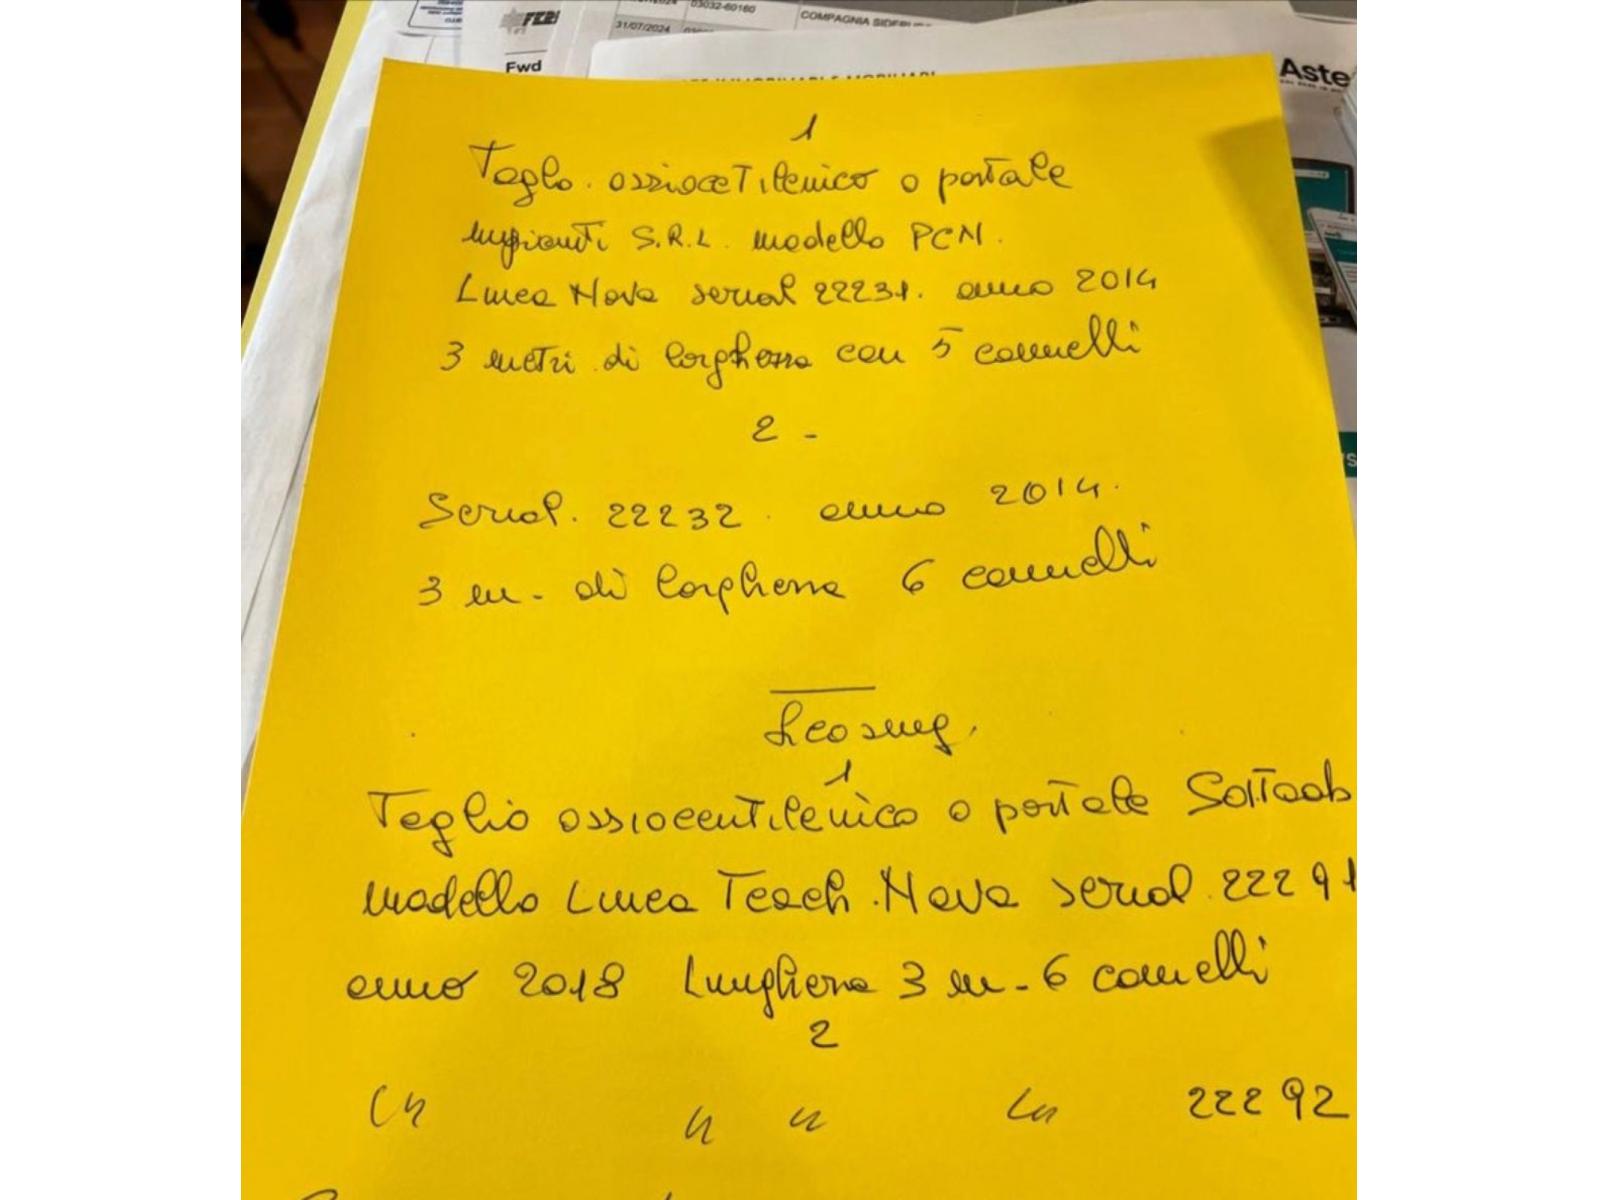 31/07/2024
03032-60160
COMPAGNIA SIDERU
FERI
Fwd
Aste
1
Taglo. ossiacetilenico o portale
impianti S.R.L. modello PCM.
Linea Nova serial 22231. anno 2014
3 metri di larghezza con 5 cannelli
2 -
Serial. 22232. anno 2014.
3 m. di larghezza 6 cannelli
Leasing.
1
Taglio ossiocentilenico o portale Soitaab
modello Linea Teach. Nova serial. 22291
anno 2018 Lunghezza 3 m. 6 cannelli
2
" " " " 22292